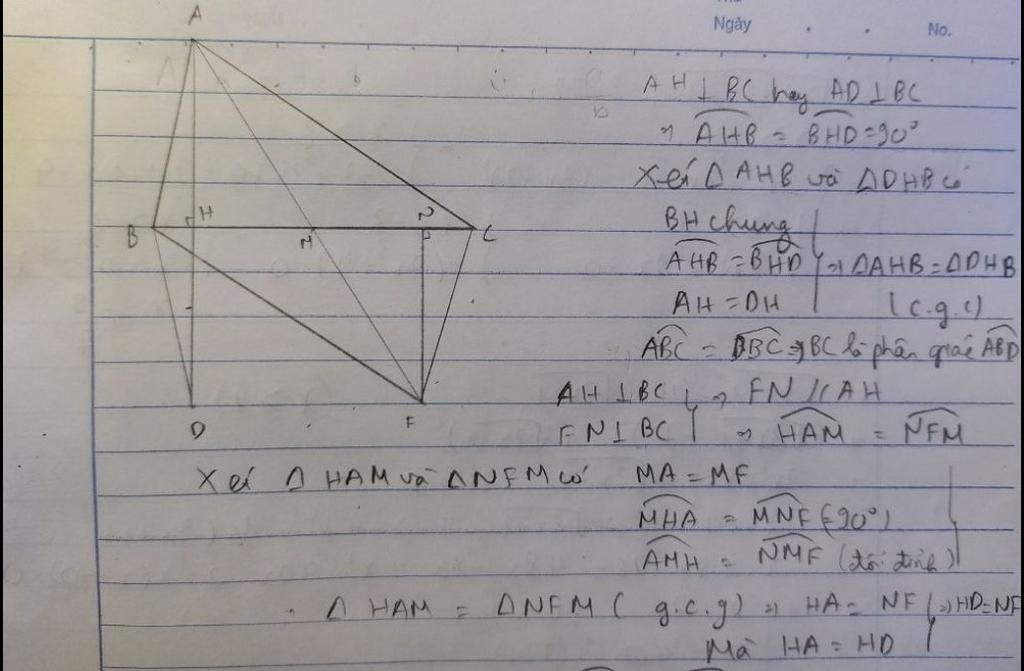 Ngày
No.
A
B
H
M
N
C
D
F
AH ⊥ BC hay AD ⊥ BC
⇒ AHB = BHD = 90°
Xét Δ AHB và Δ DHB có
BH chung
AHB = BHD ⇒ ΔAHB = ΔDHB
AH = DH (c.g.c)
ABC = DBC ⇒ BC là phân giác ABD
AH ⊥ BC ⇒ FN // AH
FN ⊥ BC ⇒ HAM = NFM
Xét Δ HAM và Δ NFM có MA = MF
MHA = MNF (=90°)
AMH = NMF (đối đỉnh)
Δ HAM = Δ NFM (g.c.g) ⇒ HA = NF ⇒ HD = NF
Mà HA = HD